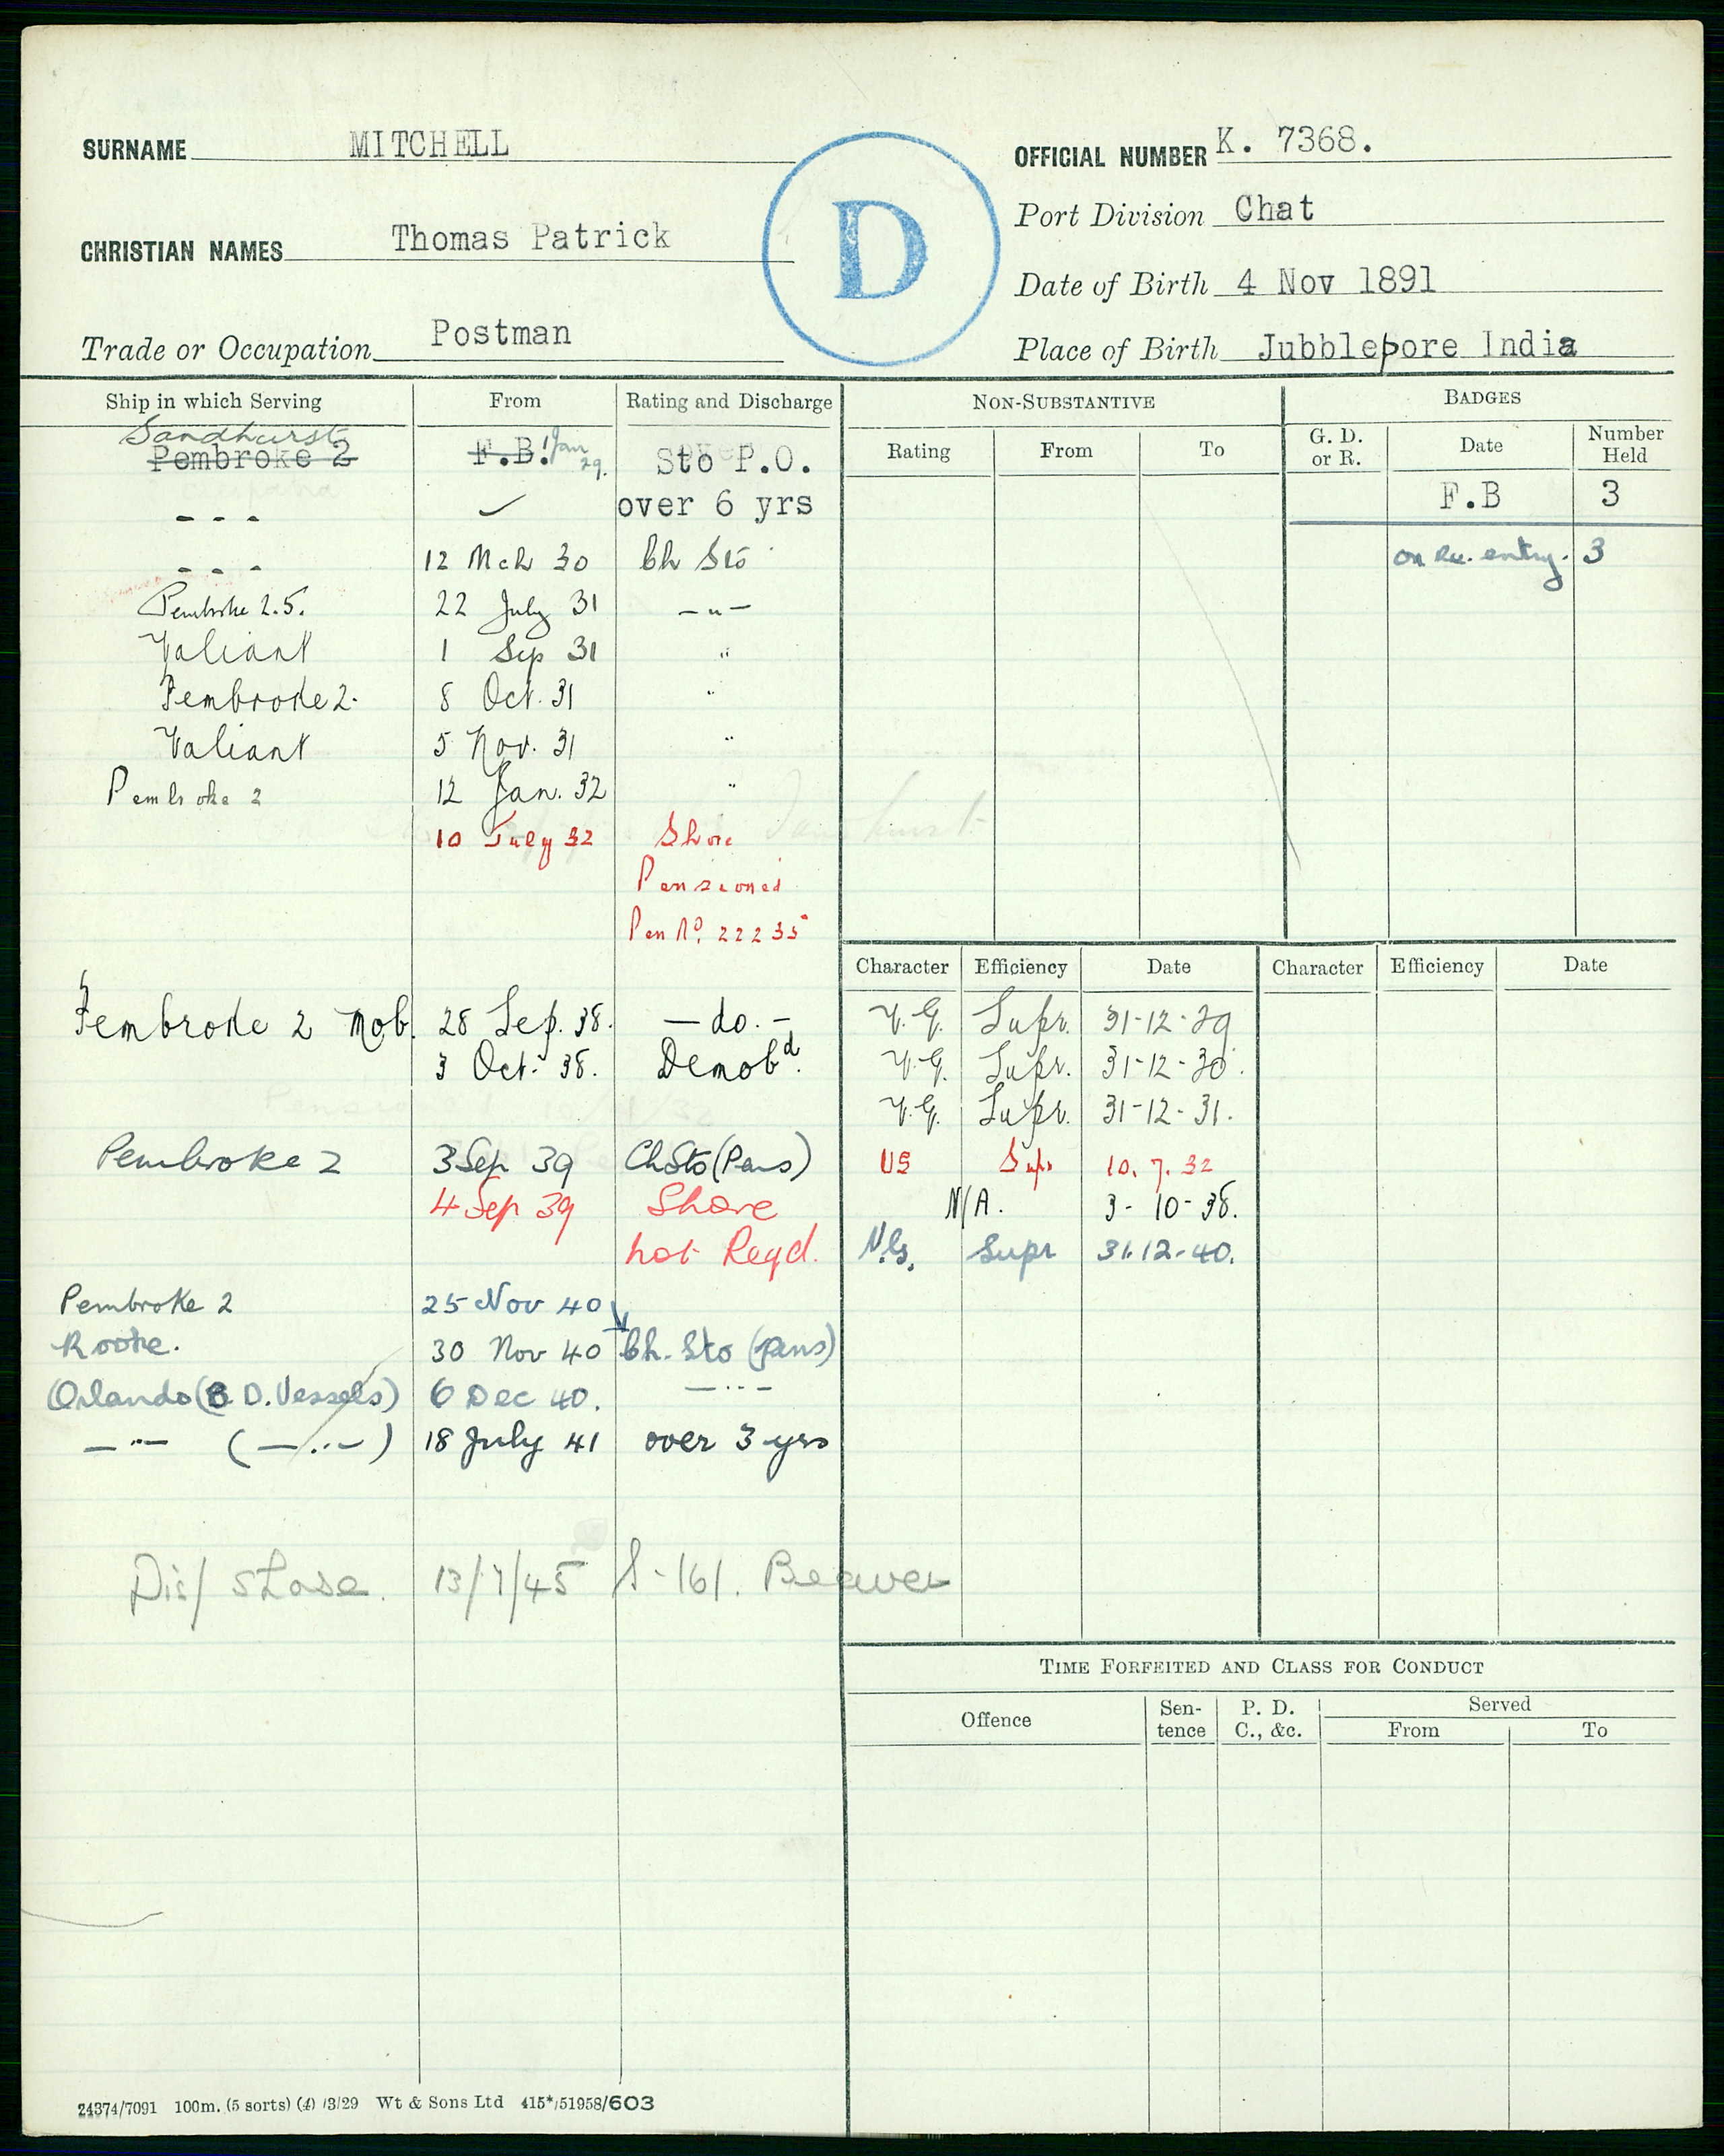 SURNAME MITCHELL
OFFICIAL NUMBER K. 7368.
Port Division Chat
CHRISTIAN NAMES Thomas Patrick
D
Date of Birth 4 Nov 1891
Trade or Occupation Postman
Place of Birth Jubblepore India
Ship in which Serving From Rating and Discharge
NON-SUBSTANTIVE
Rating From To
BADGES
G. D. or R. Date Number Held
F.B 3
on Re. entry. 3
Sandhurst
Pembroke 2 F.B. 1 Jan 29. Sto P.O.
- - - ✓ over 6 yrs
- - - 12 Mch 30 Ch Sto
Pembroke 2.5. 22 July 31 - " -
Valiant 1 Sep 31 "
Pembroke 2. 8 Oct. 31 "
Valiant 5 Nov. 31 "
Pembroke 2 12 Jan. 32 "
10 July 32 Shore
Pensioned
Pen No. 22235
Pembroke 2 Mob. 28 Sep. 38. - do. -
3 Oct. 38. Demobd.
Pembroke 2 3 Sep 39 Ch Sto (Pens)
4 Sep 39 Shore
not Reqd.
Pembroke 2 25 Nov 40
Rooke. 30 Nov 40 Ch. Sto (pens)
Orlando (B. D. Vessels) 6 Dec 40. - " -
- " - ( - " - ) 18 July 41 over 3 yrs
Dis/ Shore. 13/7/45 S-161. Beaver
Character Efficiency Date Character Efficiency Date
V.G. Supr. 31-12-29
V.G. Supr. 31-12-30.
V.G. Supr. 31-12-31.
VG Supr 10. 7. 32
N/A. 3-10-38.
V.G. Supr 31.12-40.
TIME FORFEITED AND CLASS FOR CONDUCT
Offence Sen-tence P. D. C., &c. Served
From To
24374/7091 100m. (5 sorts) (4) /3/29 Wt & Sons Ltd 415*/51958/603